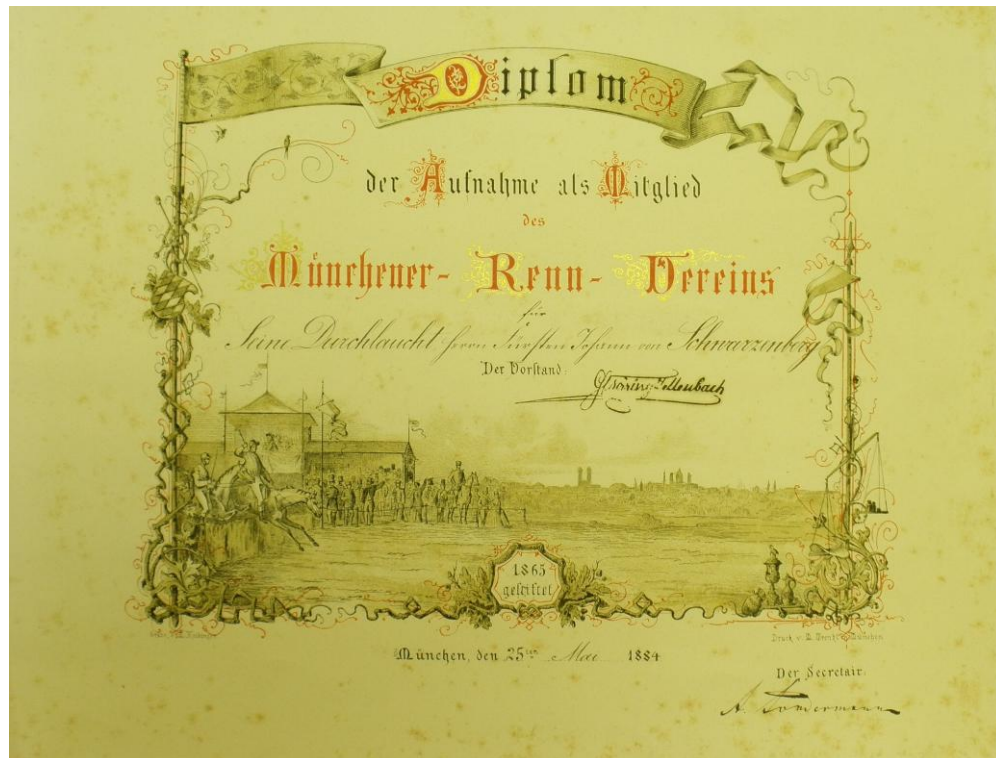 Diplom
der Aufnahme als Mitglied
des
Münchener- Renn- Vereins
für
Seine Durchlaucht Herrn Fürsten Johann von Schwarzenberg
Der Vorstand:
1865
gestiftet
München, den 25ten Mai 1884
Der Secretair: